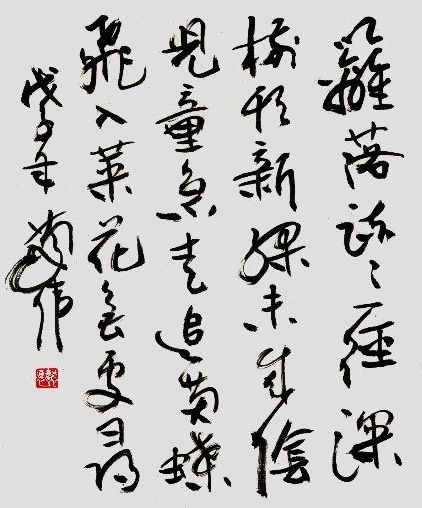 籬落疏〻一徑深
樹頭新綠未成陰
兒童急走追黄蝶
飛入菜花無處尋
戊子年